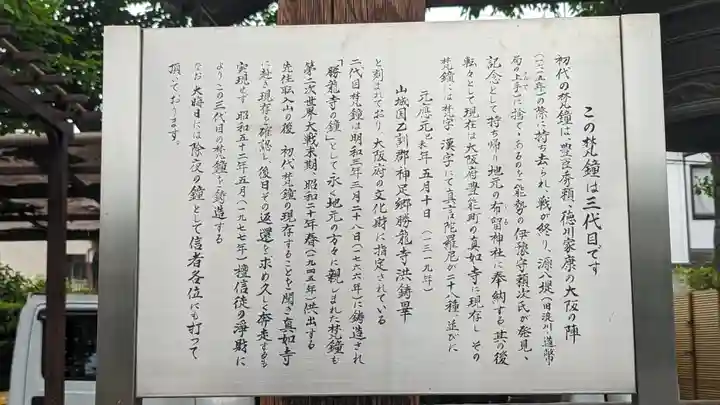 この梵鐘は三代目です
初代の梵鐘は、豊臣秀頼、徳川家康の大阪の陣
(一六一五年)の際に持ち去られ、戦が終り、源八堤(旧淀川、造幣
局の上手)に捨てゝあるのを能勢の伊豫守頼次氏が発見、
記念として持ち帰り地元の布留神社に奉納する 其の後
転々として現在は大阪府豊能町の真如寺に現存し その
梵鐘には梵字、漢字にて真言陀羅尼が二十八種、並びに
元應元己未年五月十日(一三一九年)
山城国乙訓郡神足郷勝龍寺洪鋳畢
と刻まれており、大阪府の文化財に指定されている
二代目梵鐘は明和三年三月二十八日(一七六六年)に鋳造され
「勝龍寺の鐘」として永く地元の方々に親しまれた梵鐘も
第二次世界大戦末期、昭和二十年春(一九四五年)供出する
先住取入山の後、初代梵鐘の現存することを聞き真如寺
に赴き現存を確認し、後日その返還を求め久しく奔走するも
実現せず 昭和五十二年五月(一九七七年)檀信徒の浄財に
よりこの三代目の梵鐘を鋳造する
なお、大晦日には除夜の鐘として信者各位にも打って
頂いております。